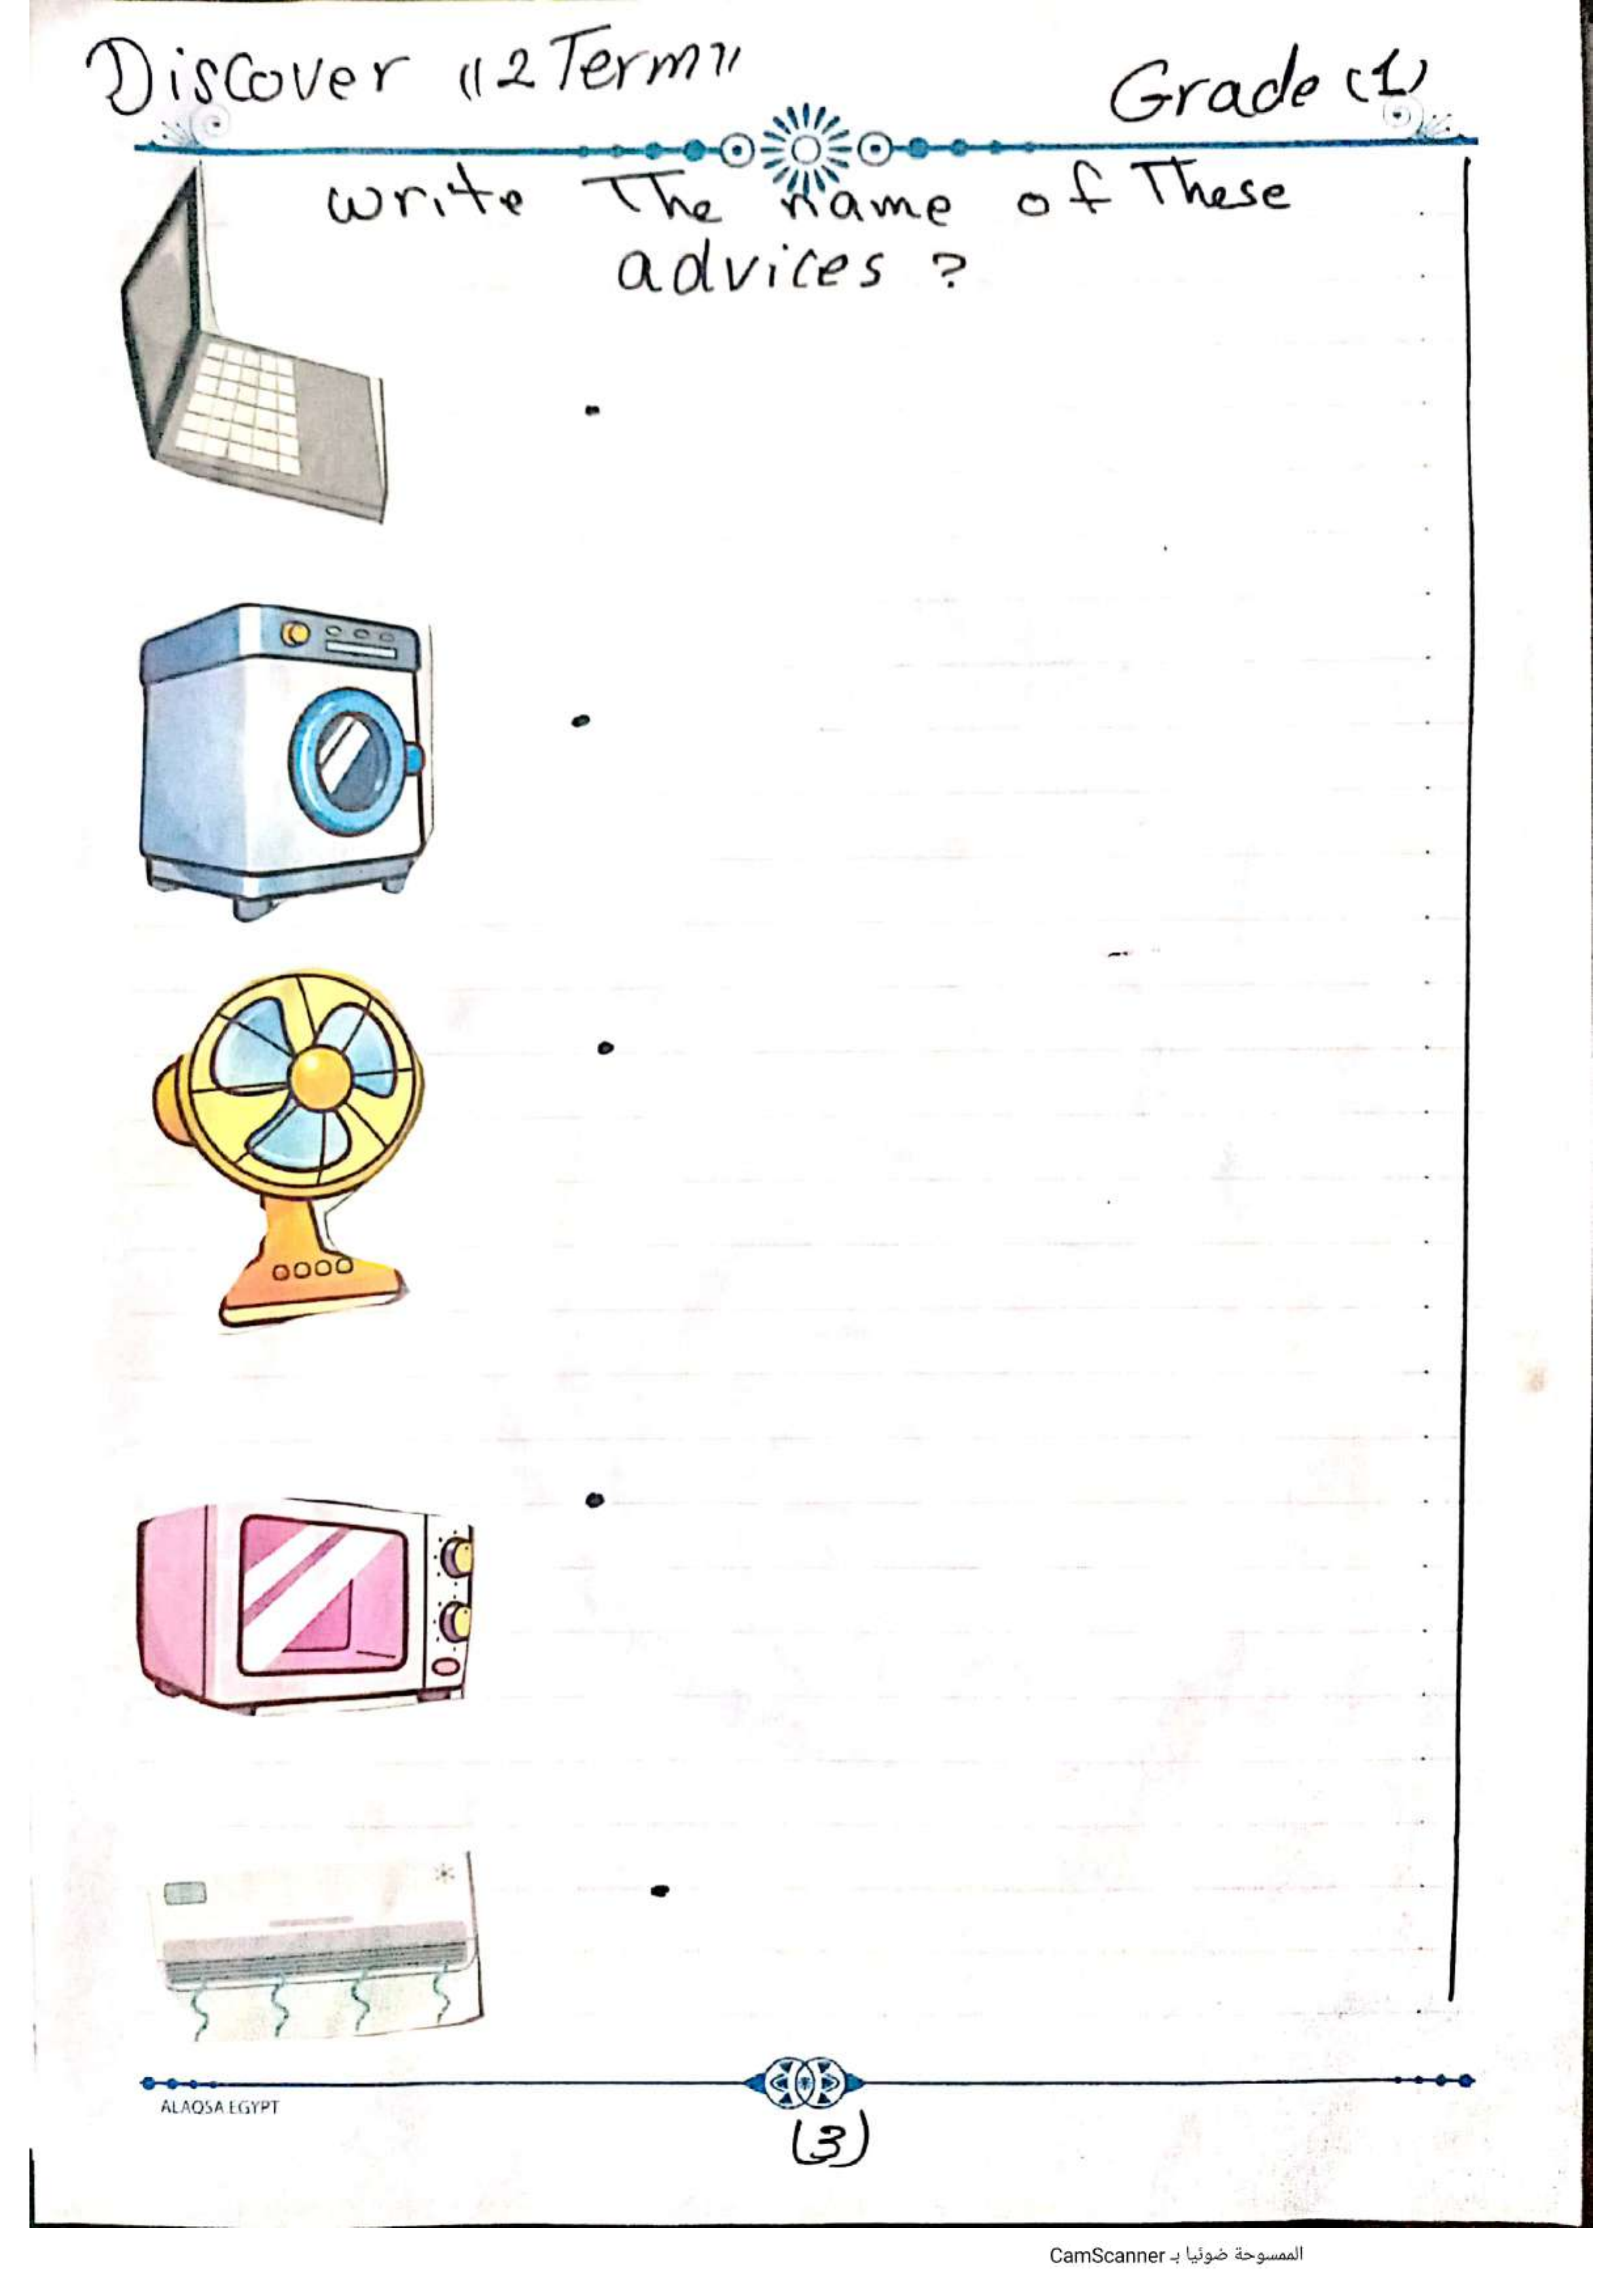 Discover "2 Term"
Grade (1)
write The name of These
advices ?
ALAQSA EGYPT
(3)
الممسوحة ضوئيا بـ CamScanner